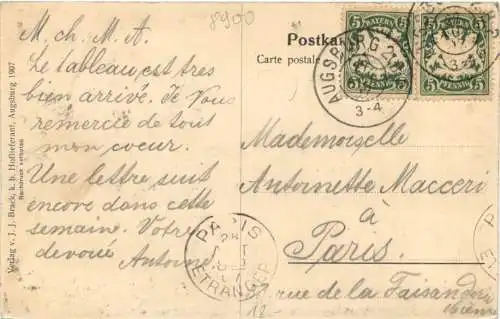 8900
M. ch. M. A.
Le tableau est tres
bien arrivé. Je Vous
remercie de tout
mon coeur.
Une lettre suit
encore dans cette
semaine. Votre
devoué
Antoine
Verlag v. J. J. Brack, k. b. Hoflieferant, Augsburg 1907
Nachdruck verboten
Postkarte
Carte postale
5 BAYERN 5
5 PFENNIG 5
5 5
5 PFENNIG 5
AUGSBURG 2
3-4
PARIS
ETRANGER
Mademoiselle
Antoinette Macceri
à
Paris.
rue de la Faisanderie
12-